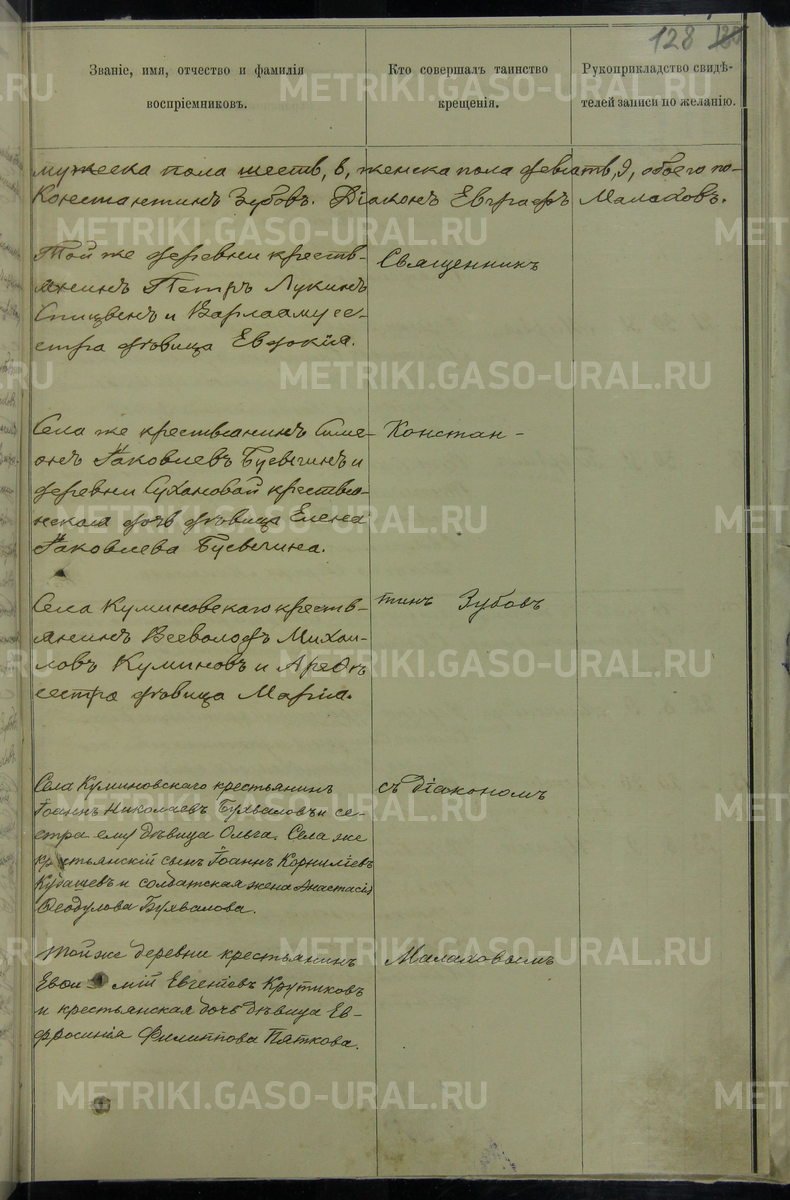 128
Званіе, имя, отчество и фамилія
воспріемниковъ.
Кто совершалъ таинство
крещенія.
Рукоприкладство свидѣ-
телей записи по желанію.
мужеска пола шесть, 6, женска пола девять, 9, обоего по-
Константинъ Зубовъ. Діаконъ Евграфъ Малаховъ.
Той же деревни кресть-
янинъ Петръ Лукинъ
и Варлааму се-
стра дѣвица Евдокія.
Священникъ
Села же крестьянинъ Симе-
онъ Іаковлевъ Бусыгинъ и
деревни Сухановой крестья-
нская дочь дѣвица Елена
Іаковлева Бусыгина.
Констан-
Села Куминовскаго кресть-
янинъ Всеволодъ Михаи-
ловъ Куминовъ и
сестра дѣвица Марія.
тинъ Зубовъ
Села Куминовскаго крестьянинъ
Іоаннъ Николаевъ Бухваловъ и се-
стра ему дѣвица Ольга. Села же
крестьянскій сынъ Іоаннъ Корниліевъ
Кубашевъ и солдатская жена Анастасія
Ѳеодулова Бухвалова.
съ діакономъ
Той же деревни крестьянинъ
Евгеніевъ Крутиковъ
и крестьянская дочь дѣвица Ев-
фросинія Филиппова Пяткова.
Малаховымъ
METRIKI.GASO-URAL.RU